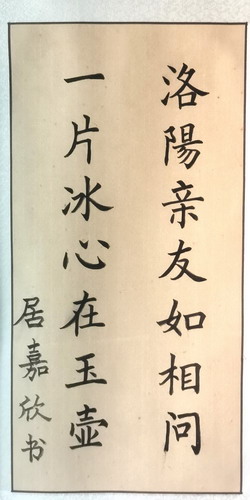 洛陽亲友如相问
一片冰心在玉壶
居嘉欣书